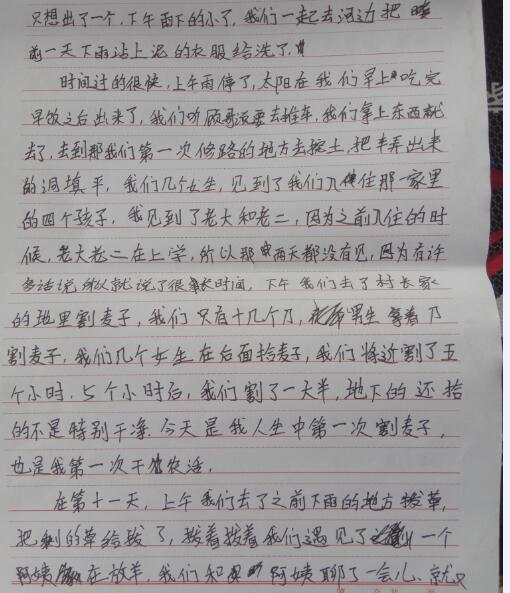 只想出了一个,下午雨下的小了,我们一起去河边把
前一天下雨沾上泥的衣服给洗了.
时间过的很快,上午雨停了,太阳在我们早上吃完
早饭之后出来了,我们听顾哥说要去推车,我们拿上东西就
去了,去到那我们第一次修路的地方去挖土,把车弄出来
的洞填平,我们几个女生,见到了我们入住那一家里
的四个孩子,我见到了老大和老二,因为之前入住的时
候,老大老二在上学,所以那两天都没有见,因为有许
多话说所以就说了很长时间,下午我们去了村长家
的地里割麦子,我们只有十几个刀,男生拿着刀
割麦子,我们几个女生在后面拾麦子,我们将近割了五
个小时.5个小时后,我们割了一大半,地下的还拾
的不是特别干净.今天是我人生中第一次割麦子,
也是我第一次干农活.
在第十一天,上午我们去了之前下雨的地方拔草,
把剩的草给拔了,拔着拔着我们遇见了一个
阿姨在放羊,我们和阿姨聊了一会儿.就